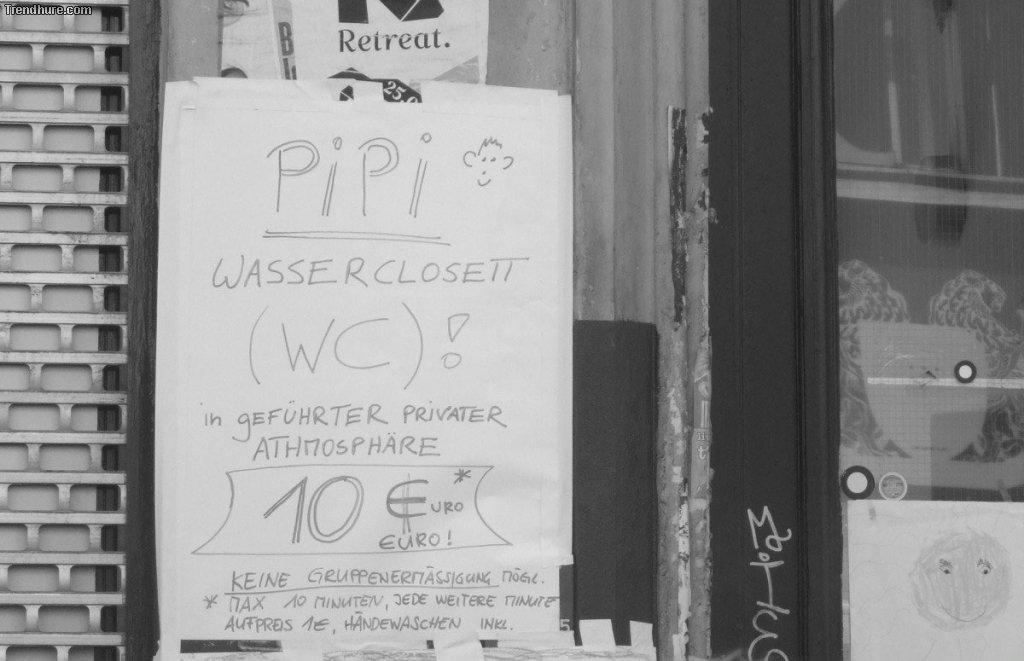 Trendhure.com
Retreat.
25.
PiPi
WASSERCLOSETT
(WC)!
in GEFÜHRTER PRIVATER
ATHMOSPHÄRE
10 €URO*
EURO!
KEINE GRUPPENERMÄSSIGUNG MÖGL.
* MAX 10 MINUTEN, JEDE WEITERE MINUTE
AUFPREIS 1€, HÄNDEWASCHEN INKL.
5